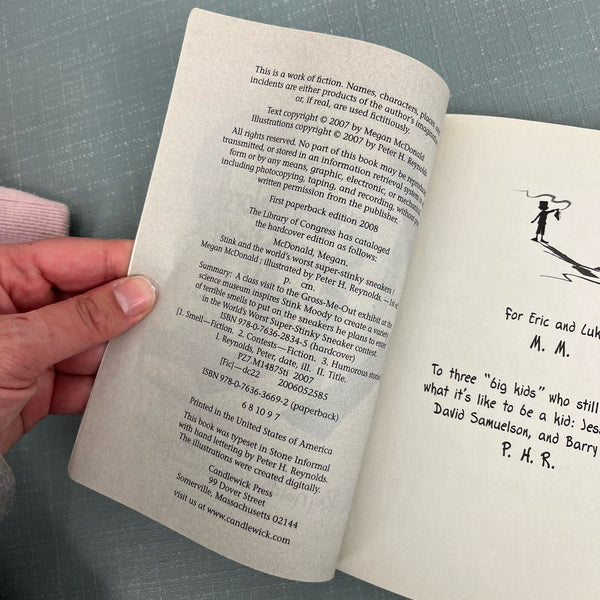 This is a work of fiction. Names, characters, places, and
incidents are either products of the author's imagination
or, if real, are used fictitiously.
Text copyright © 2007 by Megan McDonald
Illustrations copyright © 2007 by Peter H. Reynolds
All rights reserved. No part of this book may be reproduced,
transmitted, or stored in an information retrieval system in any
form or by any means, graphic, electronic, or mechanical,
including photocopying, taping, and recording, without prior
written permission from the publisher.
First paperback edition 2008
The Library of Congress has cataloged
the hardcover edition as follows:
McDonald, Megan.
Stink and the world's worst super-stinky sneakers /
Megan McDonald ; illustrated by Peter H. Reynolds. —1st ed.
p. cm.
Summary: A class visit to the Gross-Me-Out exhibit at the
science museum inspires Stink Moody to create a variety
of terrible smells to put on the sneakers he plans to enter
in the World's Worst Super-Stinky Sneaker contest.
ISBN 978-0-7636-2834-5 (hardcover)
[1. Smell—Fiction. 2. Contests—Fiction. 3. Humorous stories.
I. Reynolds, Peter, date, ill. II. Title.
PZ7.M1487Sti 2007
[Fic]—dc22 2006052585
ISBN 978-0-7636-3669-2 (paperback)
6 8 10 9 7
Printed in the United States of America
This book was typeset in Stone Informal
with hand lettering by Peter H. Reynolds.
The illustrations were created digitally.
Candlewick Press
99 Dover Street
Somerville, Massachusetts 02144
visit us at www.candlewick.com
For Eric and Luk
M. M.
To three "big kids" who still
what it's like to be a kid: Jess
David Samuelson, and Barry
P. H. R.